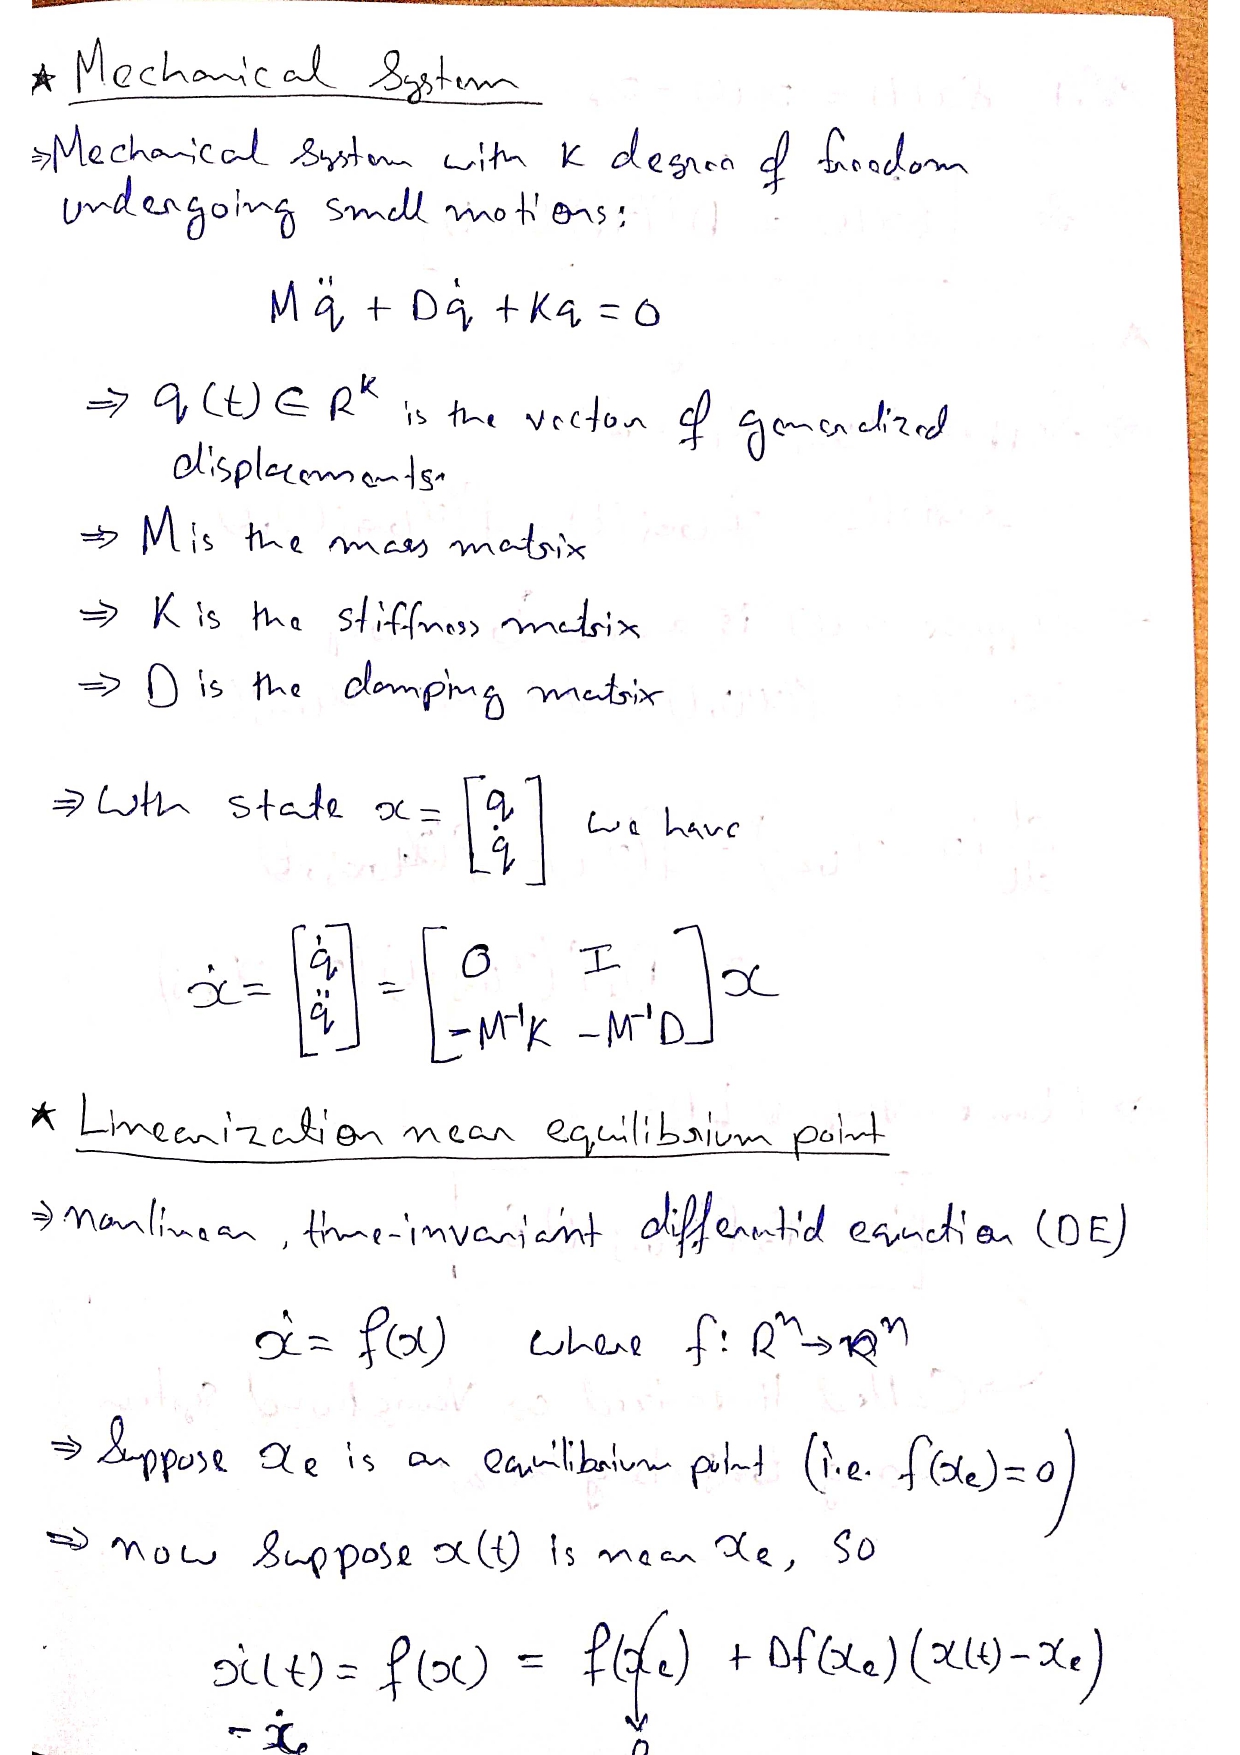 ★ Mechanical System
⇒ Mechanical System with K degree of freedom
undergoing small motions:
M q̈ + D q̇ + K q = 0
⇒ q(t) ∈ R^k is the vector of generalized
displacements.
⇒ M is the mass matrix
⇒ K is the stiffness matrix
⇒ D is the damping matrix
⇒ With state x = [q; q̇] we have
ẋ = [q̇; q̈] = [0 I; -M⁻¹K -M⁻¹D] x
★ Linearization near equilibrium point
⇒ nonlinear, time-invariant differential equation (DE)
ẋ = f(x) where f: Rⁿ → Rⁿ
⇒ Suppose xₑ is an equilibrium point (i.e. f(xₑ) = 0)
⇒ now Suppose x(t) is near xₑ, so
ẋ(t) = f(x) = f(xₑ) + Df(xₑ)(x(t) - xₑ)
- ẋₑ ↓ 0